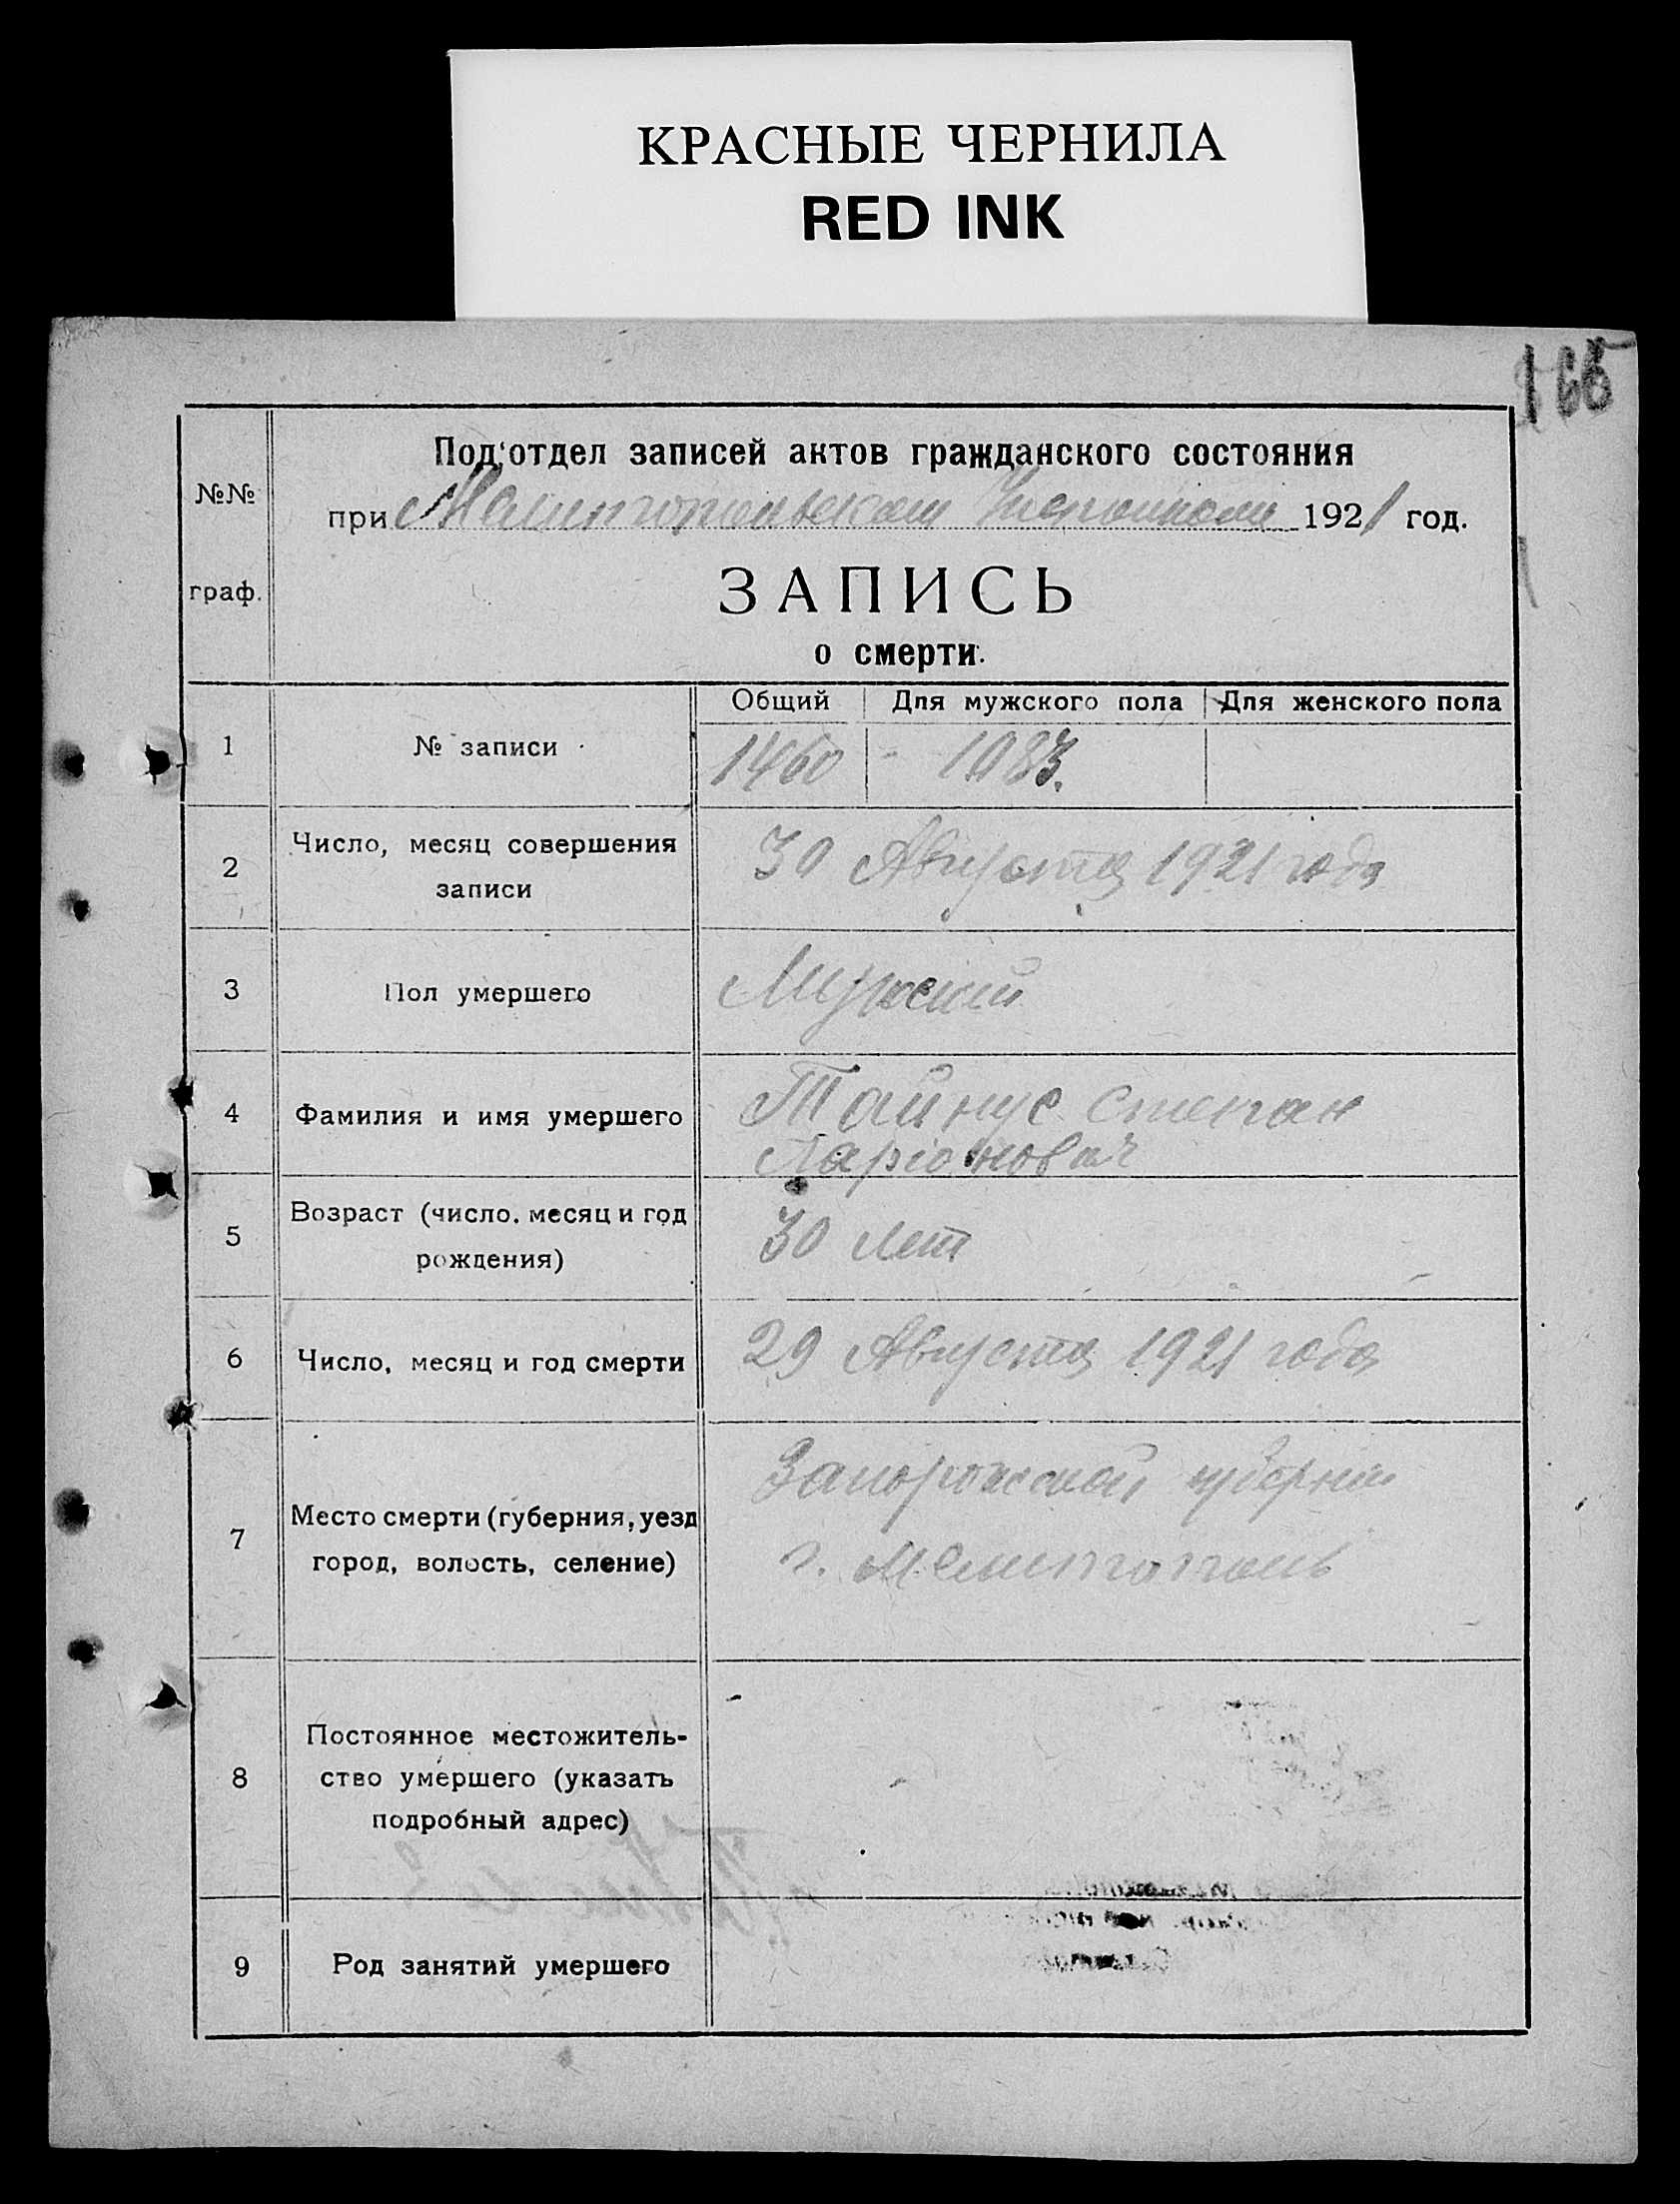 КРАСНЫЕ ЧЕРНИЛА
RED INK
165
Под'отдел записей актов гражданского состояния
№№
при Мелитопольском Исполкоме 1921 год.
граф.
ЗАПИСЬ
о смерти.
Общий Для мужского пола Для женского пола
1 № записи 1460 1083.
2 Число, месяц совершения
записи
30 Августа 1921 года
3 Пол умершего Мужской
4 Фамилия и имя умершего Тайнус Степан
Ларіонович
5 Возраст (число, месяц и год
рождения)
30 лет
6 Число, месяц и год смерти 29 Августа 1921 года
7 Место смерти (губерния, уезд
город, волость, селение)
Запорожской губернии
г. Мелитополь
8 Постоянное местожитель-
ство умершего (указать
подробный адрес)
9 Род занятий умершего